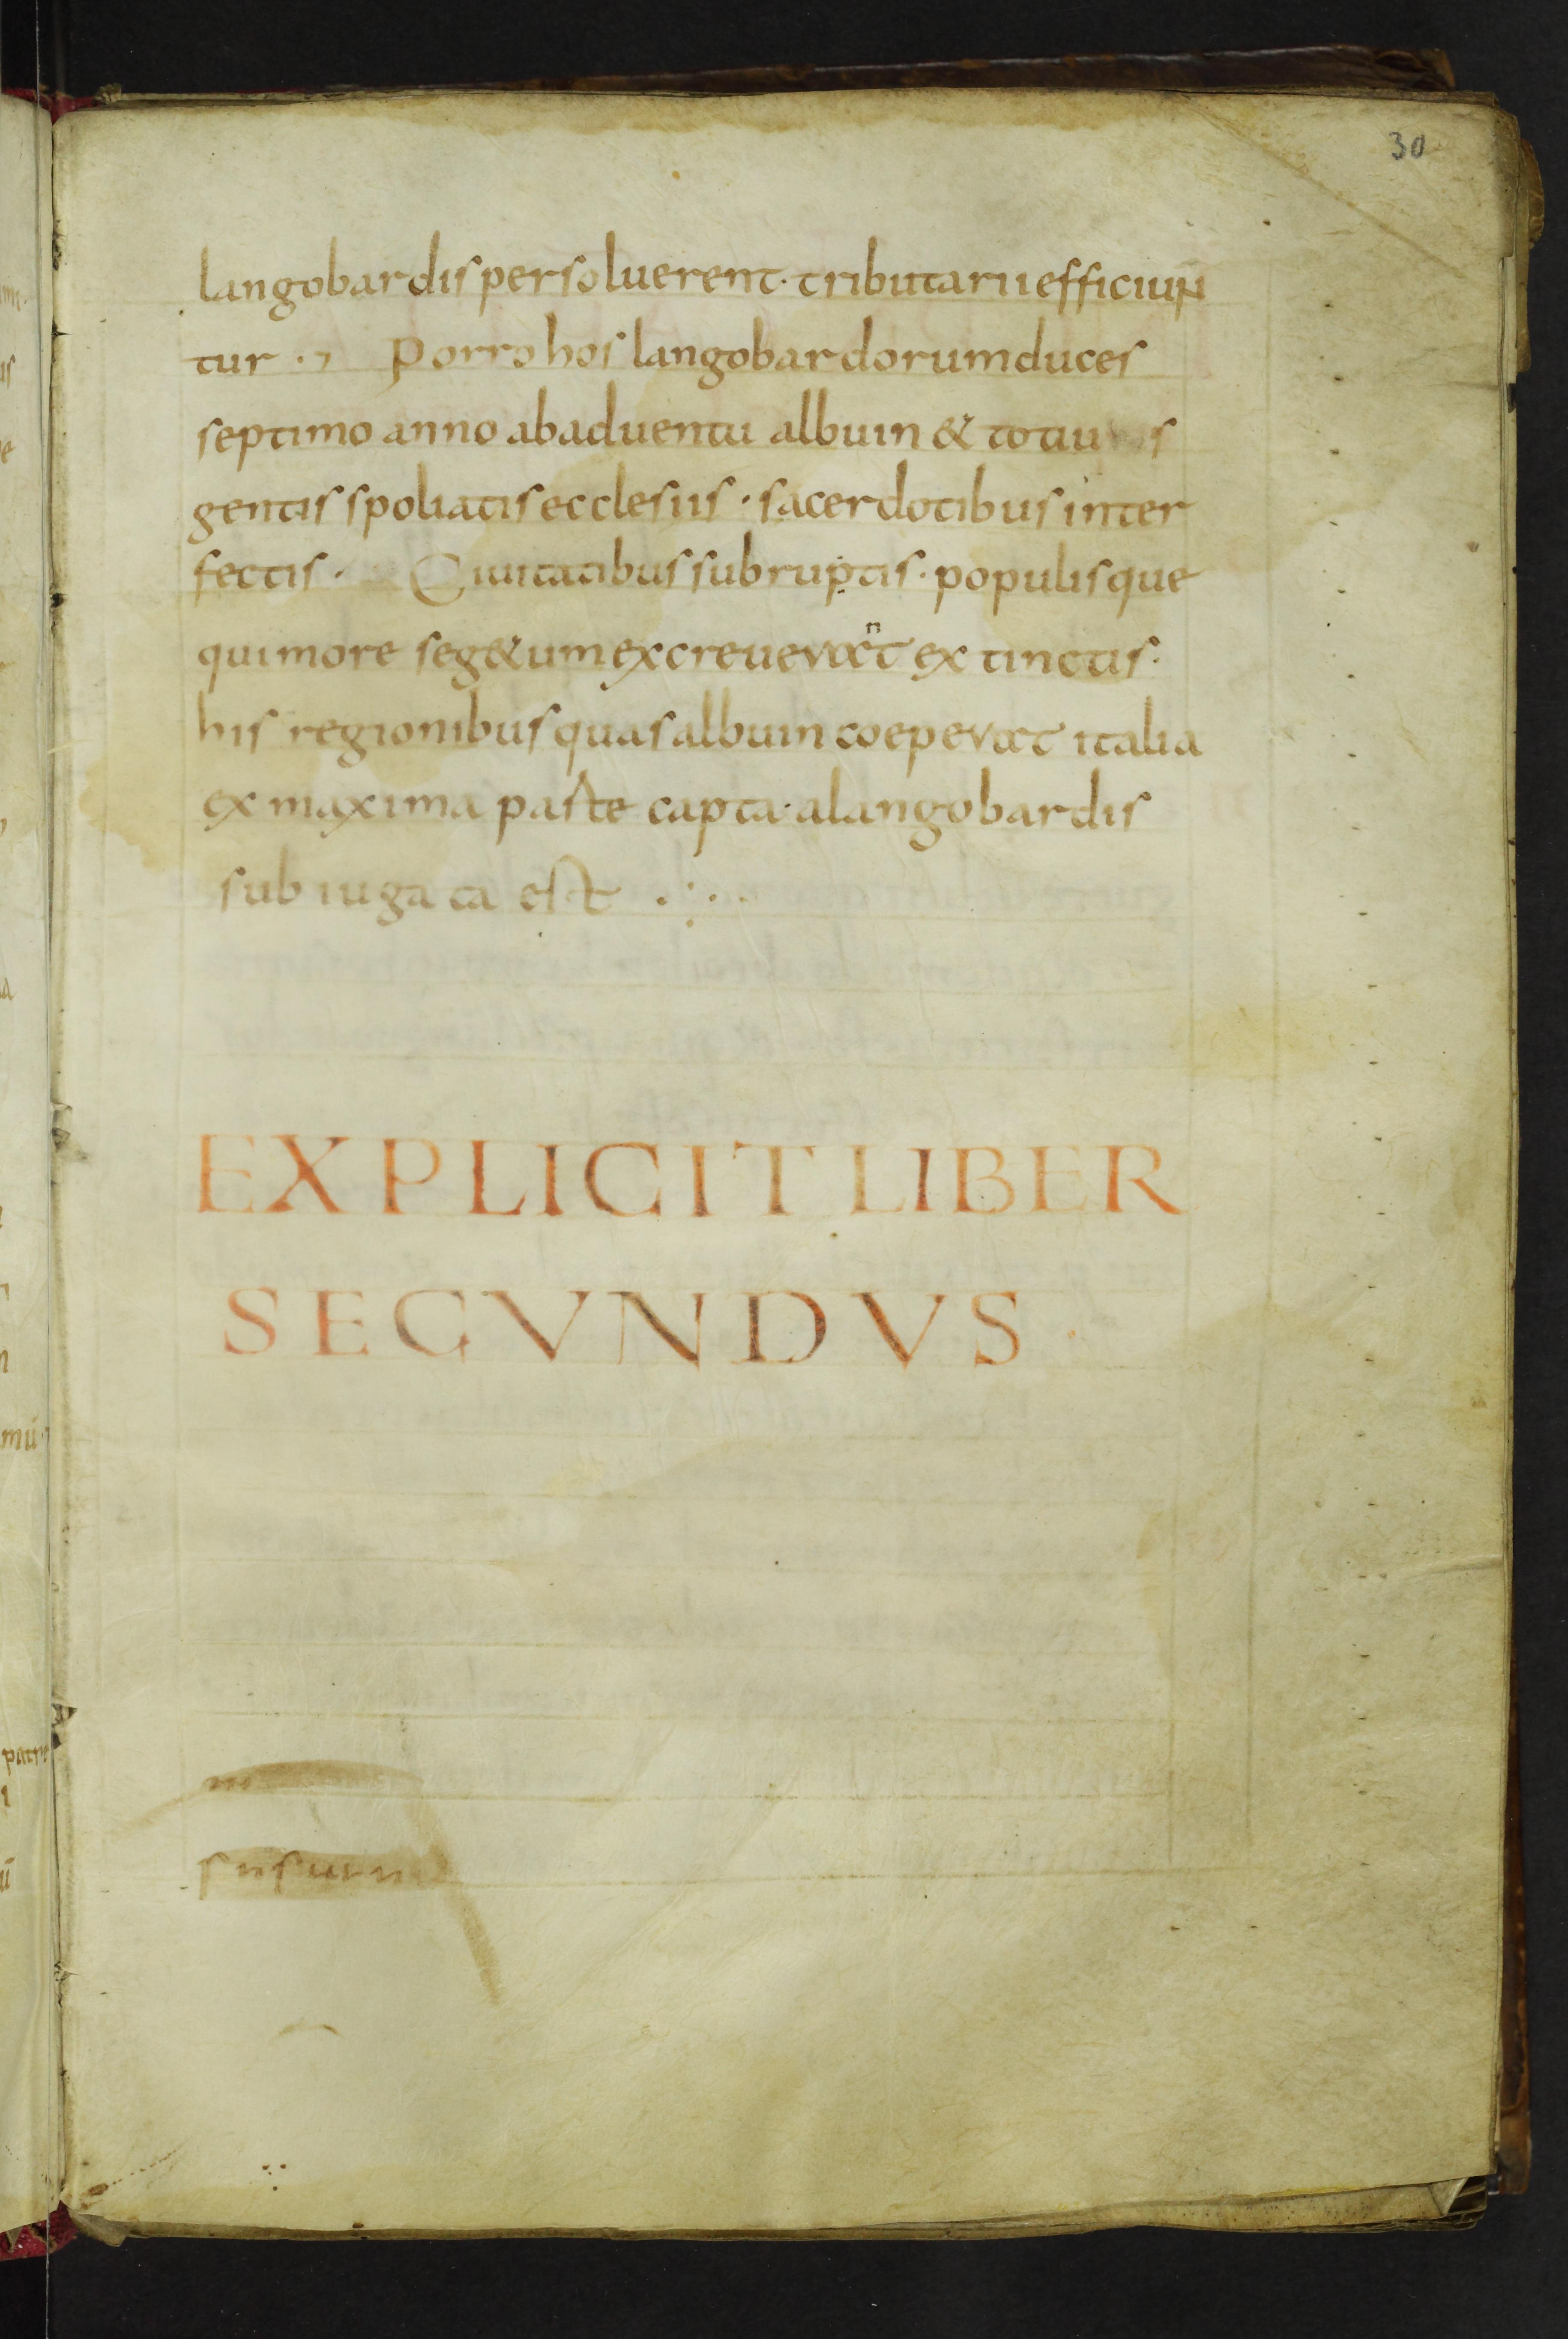 30
langobardis persoluerent· tributarii efficiun
tur ·, Porro hos langobardorum duces
septimo anno ab aduentu albuin & totius
gentis spoliatis ecclesiis · sacerdotibus inter
fectis · Ciuitatibus subruptis · populisque
qui more seg&um excreuerant extinctis·
his regionibus quas albuin coeperat italia
ex maxima parte capta· a langobardis
sub iugata est ·:·
EXPLICIT LIBER
SECVNDVS ·